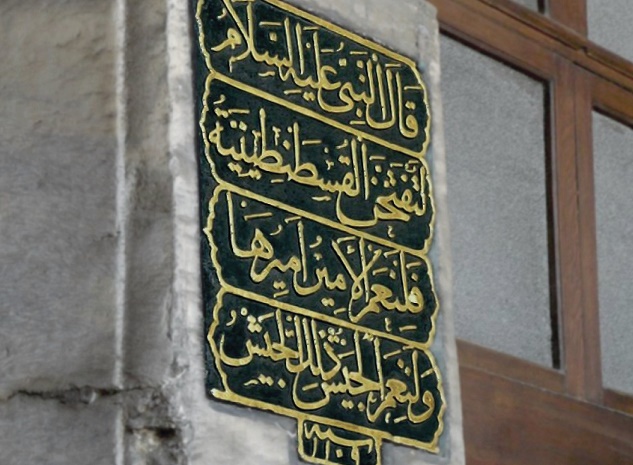 قَالَ النَّبِىُّ عَلَيْهِ السَّلَامُ
لَتُفْتَحَنَّ الْقُسْطَنْطِينِيَّةُ
فَلَنِعْمَ الْأَمِيرُ أَمِيرُهَا
وَلَنِعْمَ الْجَيْشُ ذٰلِكَ الْجَيْشُ
سنه